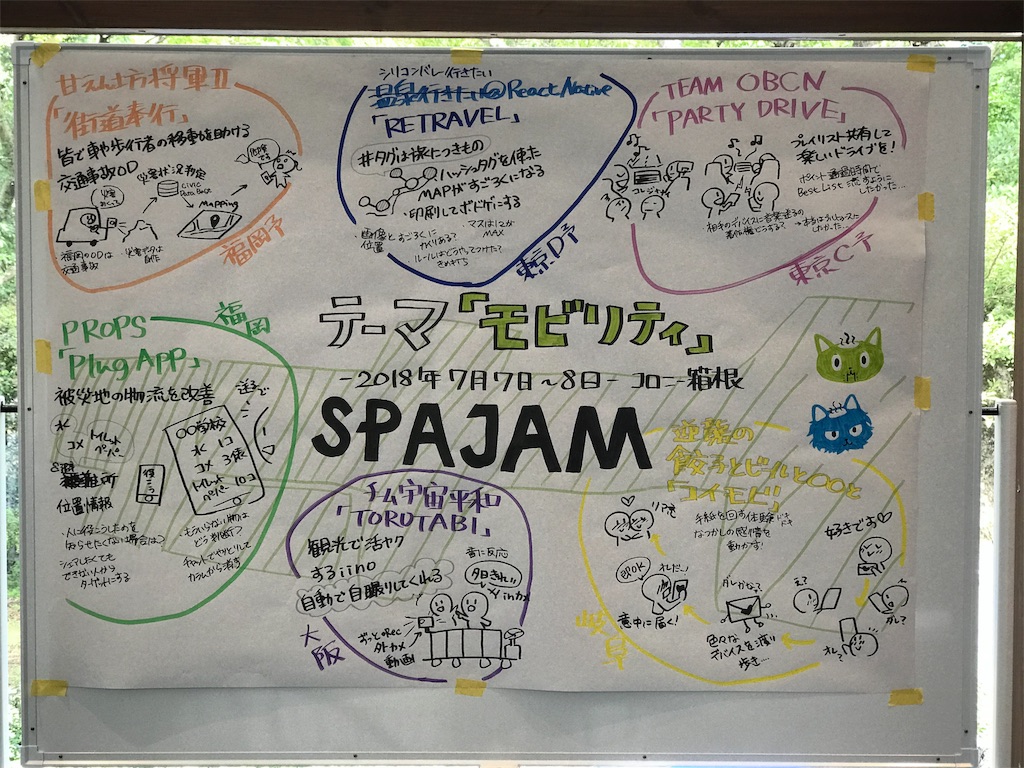 甘えん坊将軍Ⅱ
「街道奉行」
皆で車や歩行者の移動を助ける
交通事故OD
災害状況判定
CIVIC
Data Base
MAPPing
福岡のODは
交通事故
災害データは
自作
福岡予
シリコンバレー行きたい
温泉行きたい@React Native
「RETRAVEL」
#タグは旅につきもの
ハッシュタグを使った
MAPがすごろくになる
・印刷してボドゲにする
・画像と
位置
すごろくに
かわりある?
・マスは12が
MAX
・ルールはどうやってつけた?
きめ打ち
東京D予
TEAM OBCN
「PARTY DRIVE」
プレイリスト共有して
楽しいドライブを!
コレジャ
ポイント通過時間で
Best List 流すように
したかった…
東京C予
テーマ「モビリティ」
-2018年7月7日~8日- コロニー箱根
SPAJAM
PROPS
「Plug APP」
福岡
被災地の物流を改善
水
コメ
トイレット
ペーパー
避難所
位置情報
〇〇学校
水 1コ
コメ 3俵
トイレット
ペーパー 10コ
・人に役にたったのを
知らせたくない場合は?
シェアしたくても
できない人から
ターゲットにする
・もういらない物は
どう判断?
チャットでやりとりして
カラムから消す
チーム宇宙平和
「TOROTABI」
観光で活ヤク
するiino
自動で自撮りしてくれる
音に反応
夕日きれい
インカメ
ずっとRec
外カメ
動画
大阪
逆襲の
餃子とビールと〇〇と
「コイモビ」
手紙を回す体験
なつかしの感情を
動かす!
ドキ
ドキ
好きです♡
リア充
既読OK
オレだ…!
意中に届く!
ダレかな?
色々な
デバイスを渡り
歩き…
え?
ダレ?
オレ?